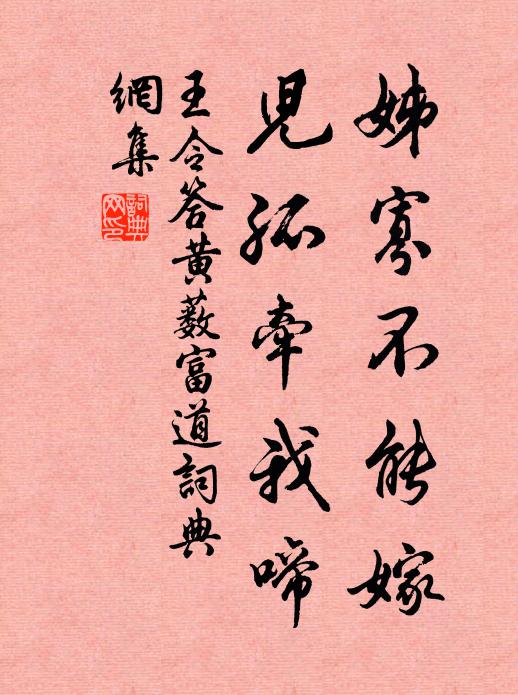 姊寡不能嫁
兒孤牽我啼
王令答黃藪富道詞典
網集
詞典網印